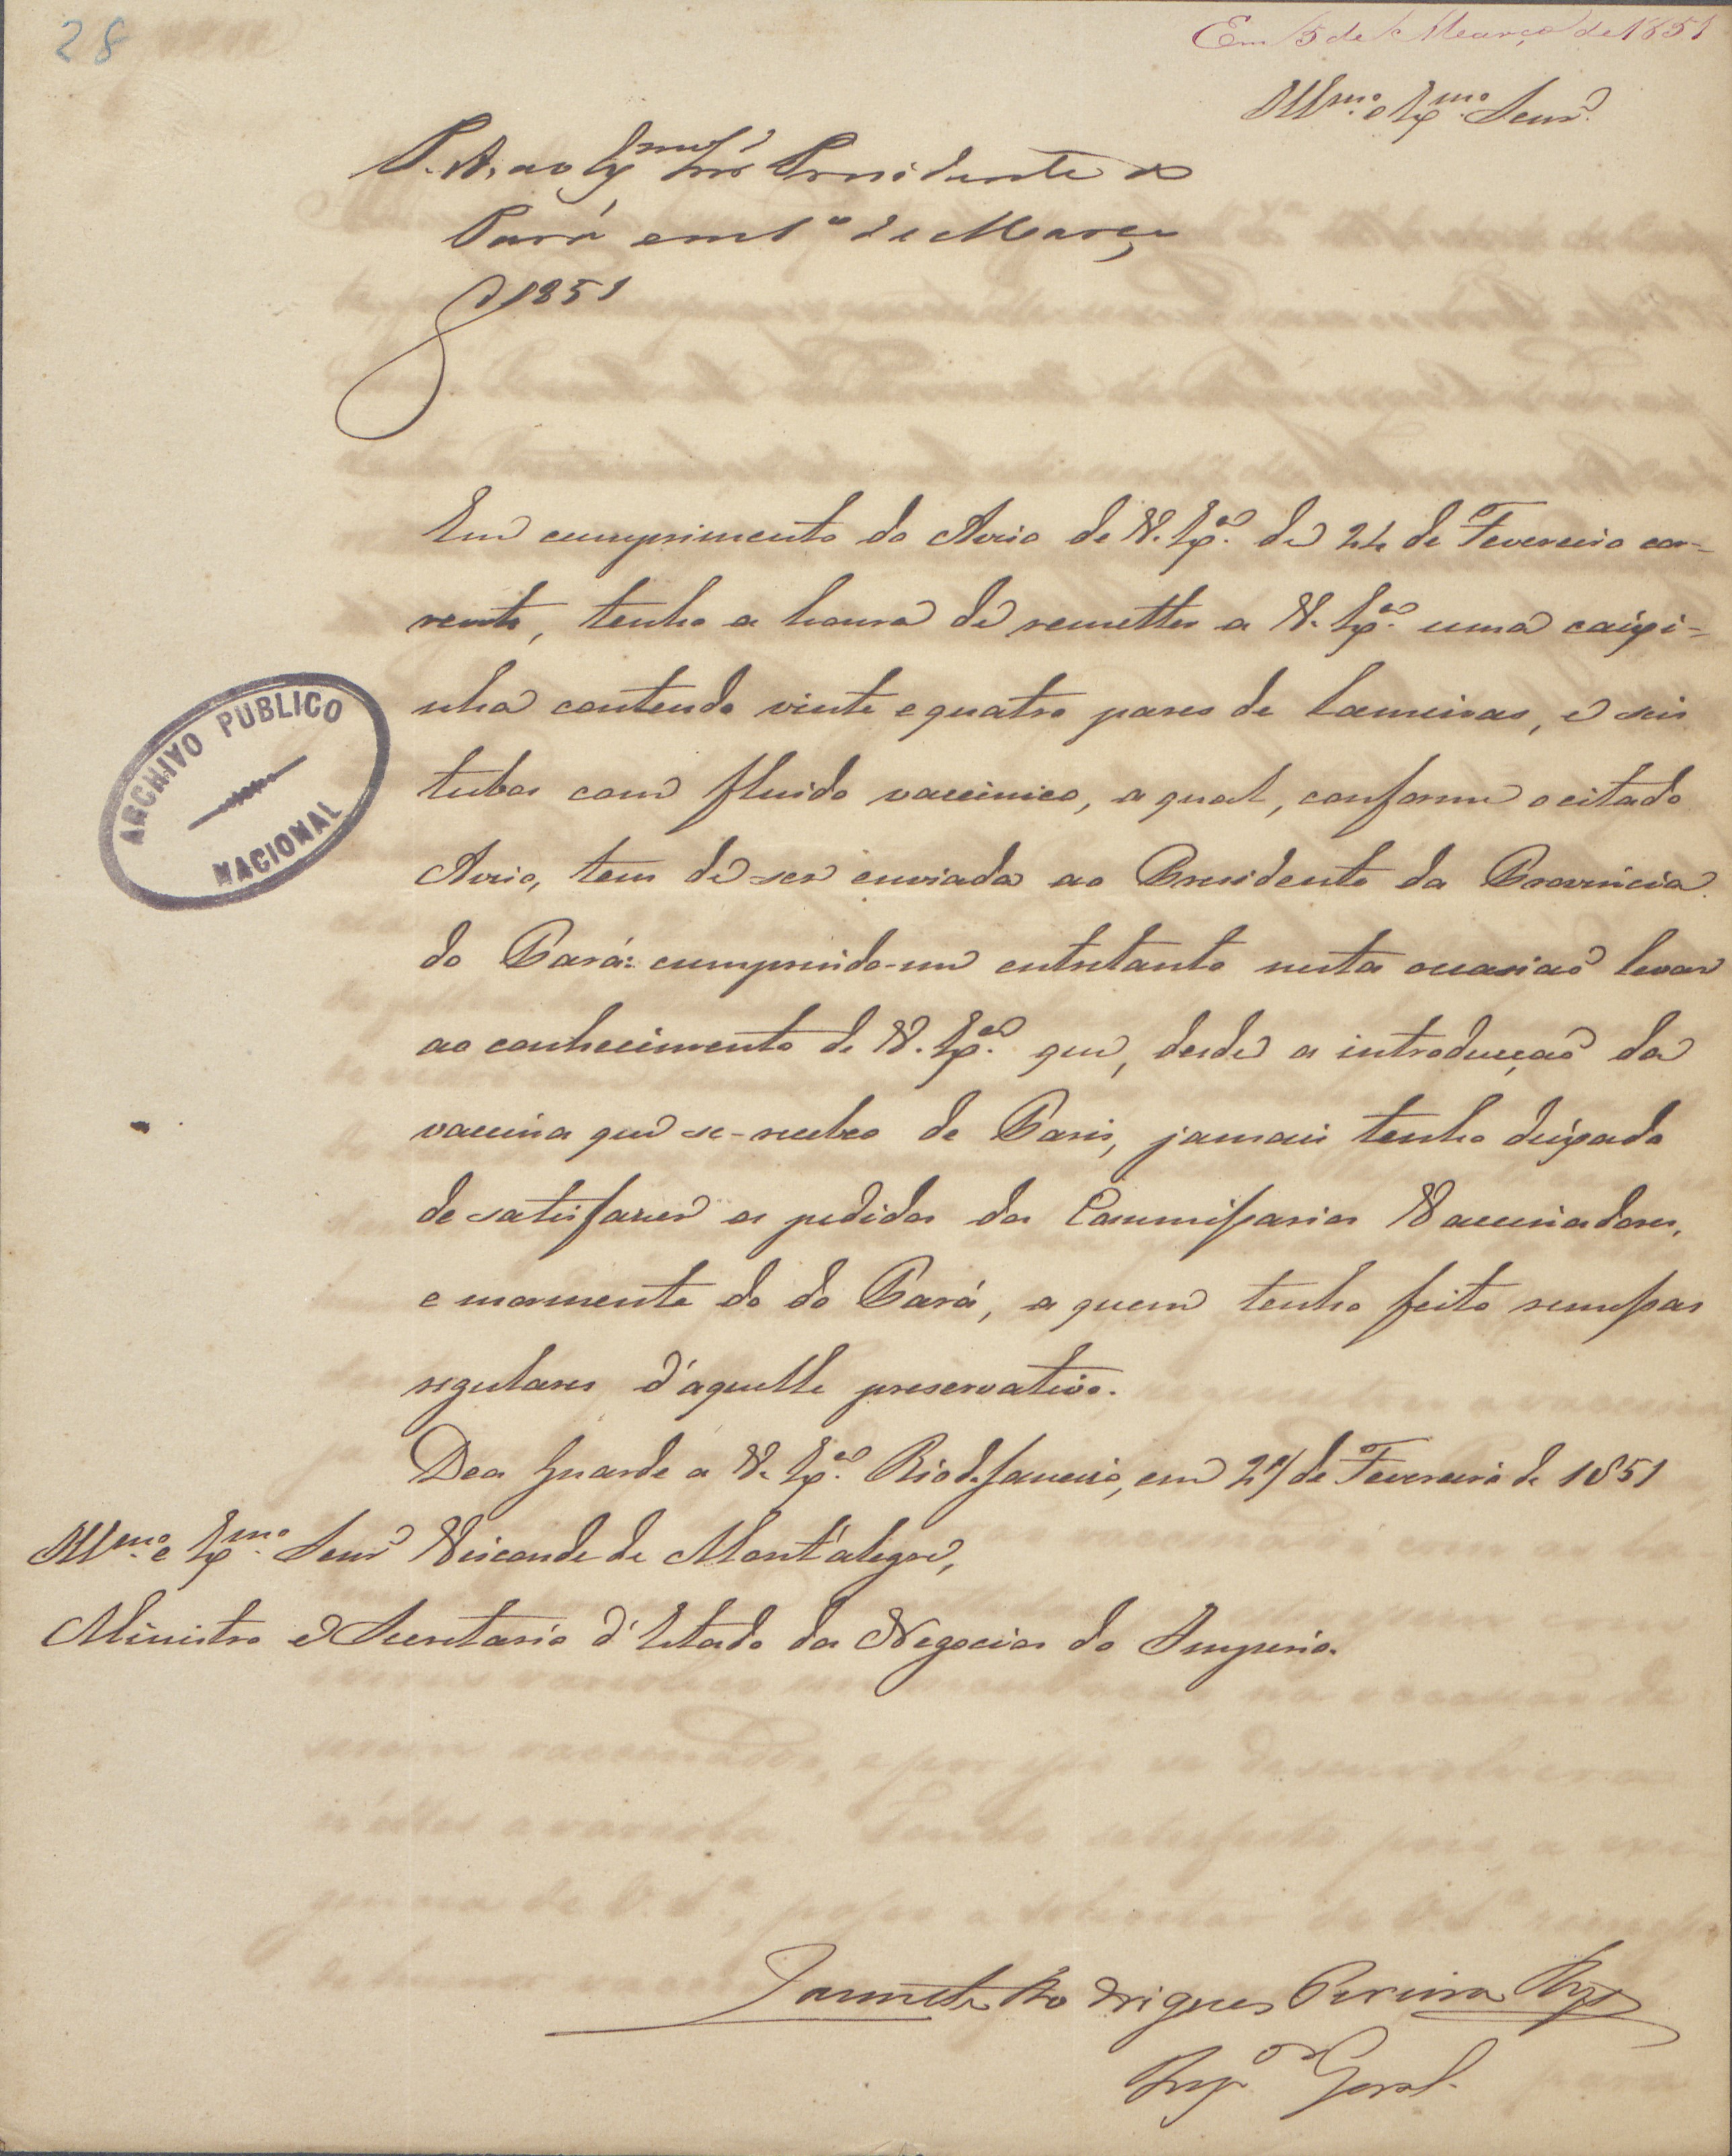 28
Em 5 de Março de 1851
Illmo. e Exmo. Senr.
P. A. ao Exmo Snr Presidente do
Pará em 1º de Março
d 1851
Em cumprimento do Aviso de V. Exª. de 24 de Fevereiro cor-
rente, tenho a honra de remetter a V. Exª. uma caixi-
nha contendo vinte e quatro pares de laminas, e seis
tubos com fluido vaccinico, a qual, conforme o citado
Aviso, tem de ser enviada ao Presidente da Provincia
do Pará: cumprindo-me entretanto nesta occasiaõ levar
ao conhecimento de V. Exª. que, desde a introducçaõ da
vaccina que se-recebeo de Paris, jamais tenho deixado
de satisfazer os pedidos dos Commissarios Vaccinadores,
e mormente do do Pará, a quem tenho feito remessas
regulares d'aquelle preservativo.
Deos Guarde a V. Exª. Rio de Janeiro, em 27 de Fevereiro de 1851
Illmo. e Exmo. Senr Visconde de Mont'alegre,
Ministro e Secretario d'Estado dos Negocios do Imperio.
Rodrigues Pereira
Inspor Geral
ARCHIVO PUBLICO
NACIONAL